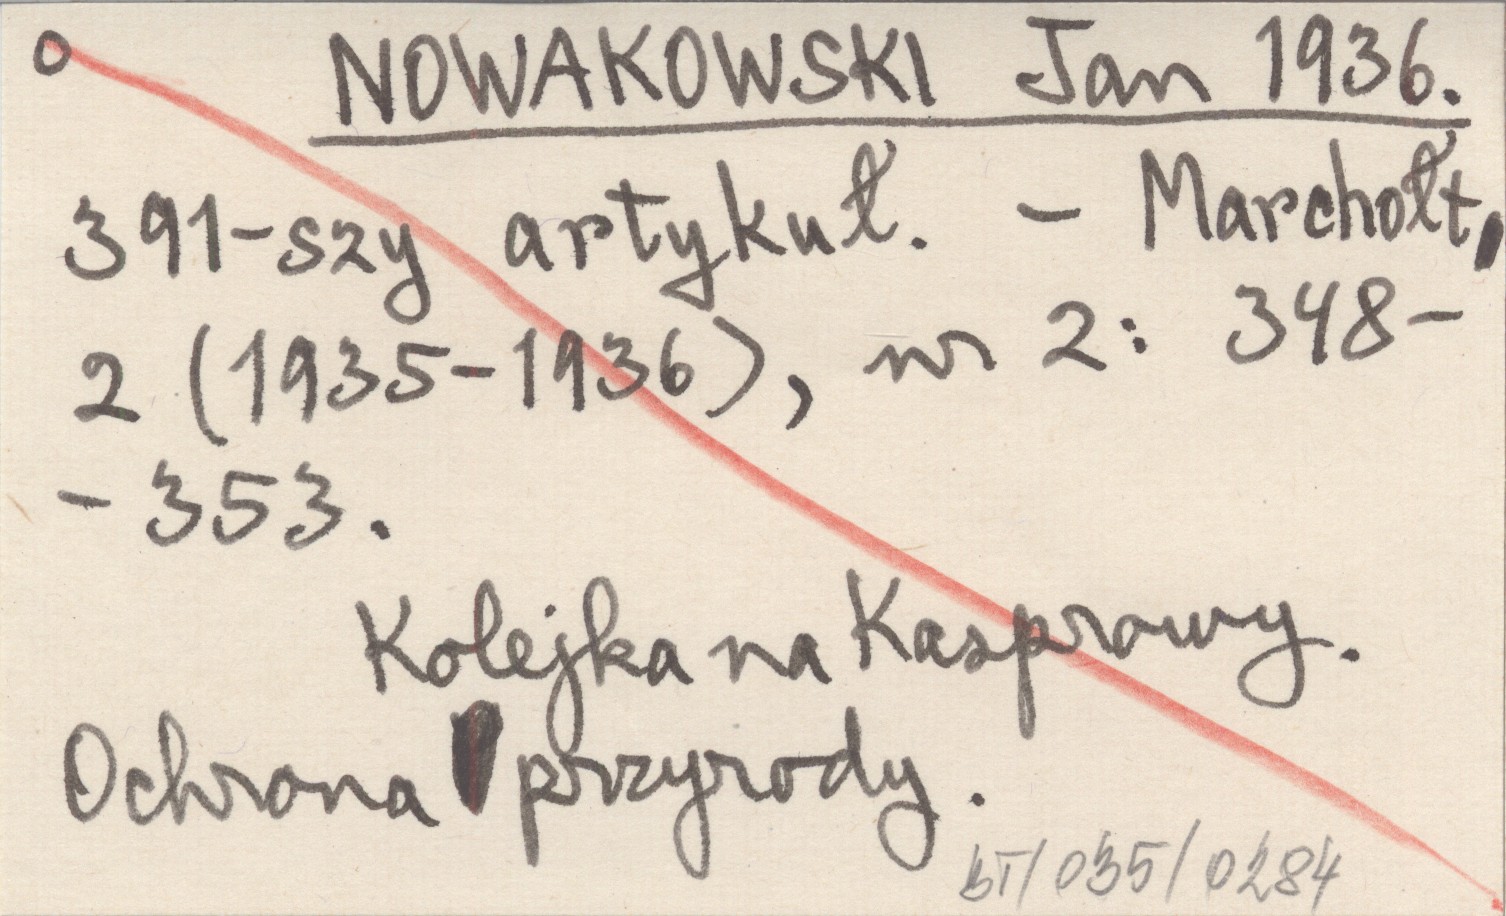 o NOWAKOWSKI Jan 1936.
391-szy artykuł. - Marchołt,
2 (1935-1936), nr 2: 348-
- 353.
Kolejka na Kasprowy.
Ochrona przyrody.
BT/035/0284